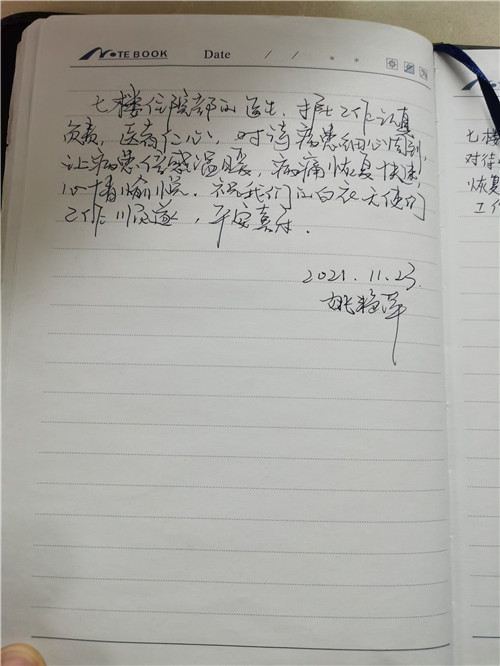 NOTEBOOK Date / / * *
七楼住院部的医生,护士工作认真
负责,医者仁心,对待病患细心周到,
让病患倍感温暖,病痛恢复快速,
心情愉悦。祝我们的白衣天使们
工作顺遂,平安喜乐.
2021.11.23.
七楼
对待
恢复
工作